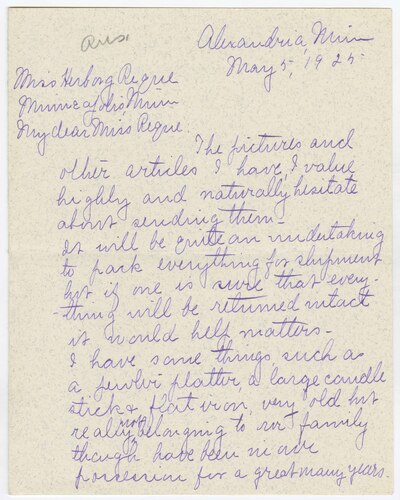 Ans.
Alexandria, Minn
May 5, 1925
Miss Herborg Reque
Minneapolis, Minn
My dear Miss Reque.
The pictures and
other articles I have, I value
highly and naturally hesitate
about sending them.
It will be quite an undertaking
to pack everything for shipment
but if one is sure that every-
thing will be returned intact
it would help matters.
I have some things such as
a pewter platter, a large candle
stick & flat iron, very old but
really not belonging to our family
though have been in our
possession for a great many years.